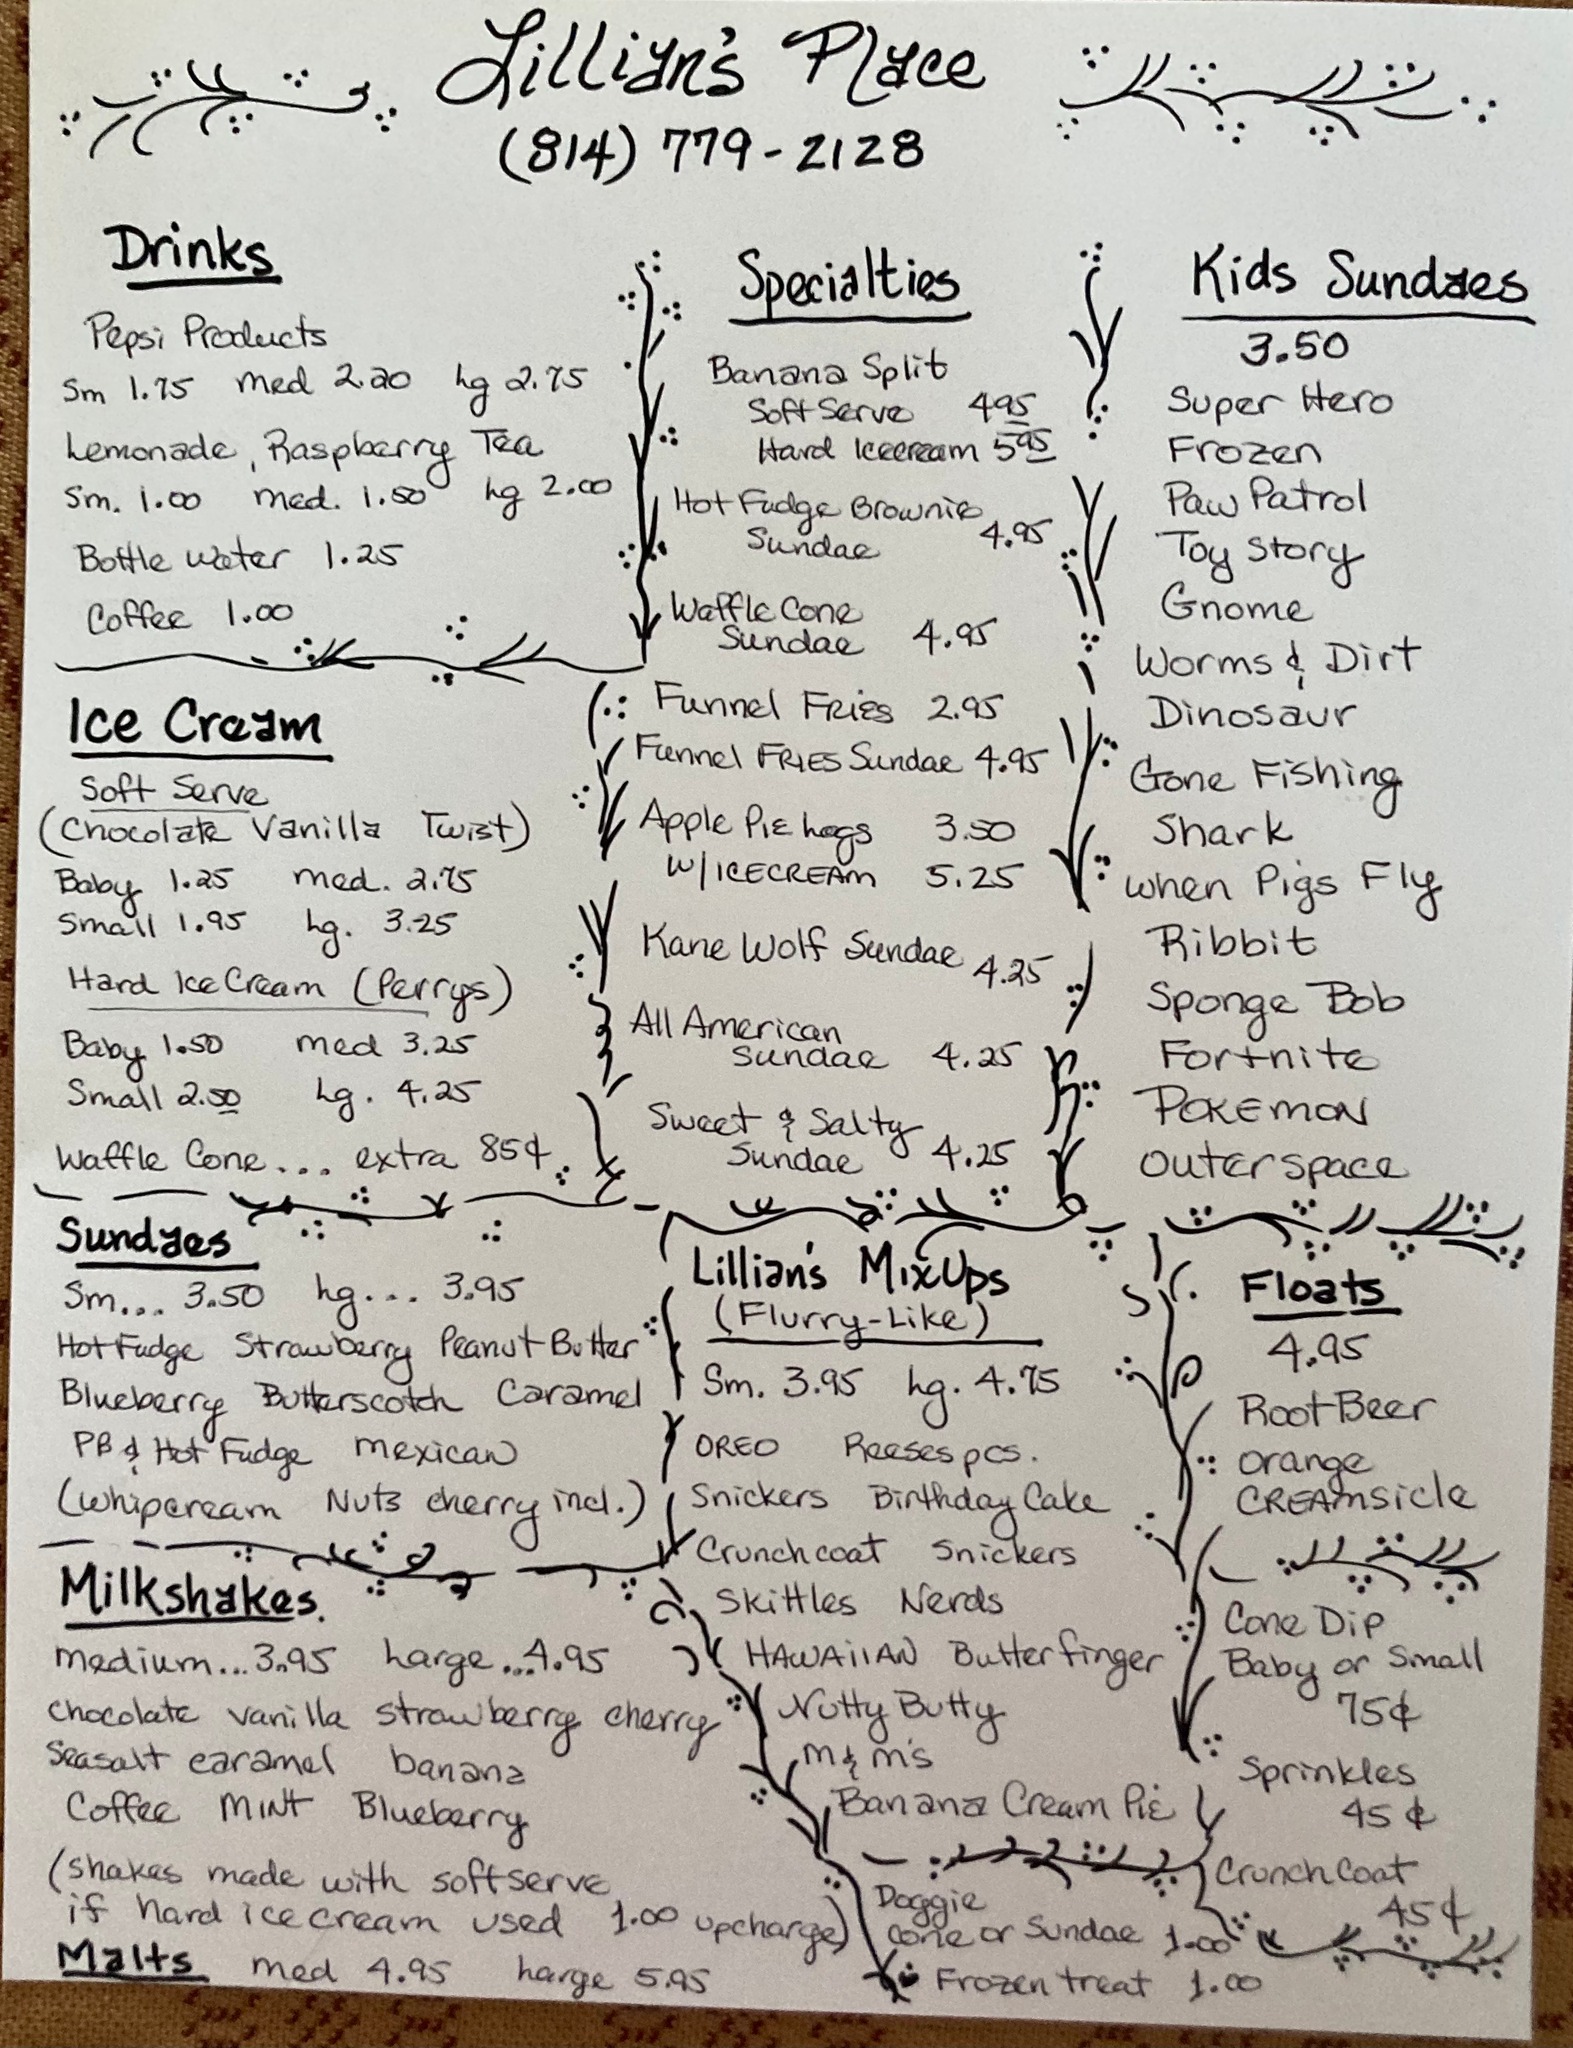 Lillian's Place
(814) 779-2128
Drinks
Pepsi Products
Sm 1.75 med 2.20 Lg 2.75
Lemonade, Raspberry Tea
Sm. 1.00 med. 1.50 Lg 2.00
Bottle water 1.25
Coffee 1.00
Ice Cream
Soft Serve
(Chocolate Vanilla Twist)
Baby 1.25 med. 2.75
Small 1.95 Lg. 3.25
Hard Ice Cream (Perrys)
Baby 1.50 med 3.25
Small 2.50 Lg. 4.25
Waffle Cone... extra 85¢
Sundaes
Sm... 3.50 Lg... 3.95
Hot Fudge Strawberry Peanut Butter
Blueberry Butterscotch Caramel
PB & Hot Fudge Mexican
(Whipcream Nuts cherry incl.)
Milkshakes
medium...3.95 Large...4.95
chocolate vanilla strawberry cherry
Seasalt caramel banana
Coffee MINT Blueberry
(shakes made with softserve
if hard ice cream used 1.00 upcharge)
Malts med 4.95 Large 5.95
Specialties
Banana Split
Soft Serve 4.95
Hard Icecream 5.95
Hot Fudge Brownie
Sundae 4.95
Waffle Cone
Sundae 4.95
Funnel FRIES 2.95
Funnel FRIES Sundae 4.95
Apple Pie Logs 3.50
W/ICECREAM 5.25
Kane Wolf Sundae 4.25
All American
Sundae 4.25
Sweet & Salty
Sundae 4.25
Lillian's MixUps
(Flurry-Like)
Sm. 3.95 Lg. 4.75
OREO Reeses pcs.
Snickers Birthday Cake
Crunchcoat Snickers
Skittles Nerds
HAWAIIAN Butterfinger
Nutty Butty
M & M's
Banana Cream Pie
Doggie
Cone or Sundae 1.00
Frozen treat 1.00
Kids Sundaes
3.50
Super Hero
Frozen
Paw Patrol
Toy Story
Gnome
Worms & Dirt
Dinosaur
Gone Fishing
Shark
When Pigs Fly
Ribbit
Sponge Bob
Fortnite
POKEMON
Outerspace
Floats
4.95
Root Beer
Orange
CREAMSICLE
Cone Dip
Baby or Small
75¢
Sprinkles
45¢
Crunch Coat
45¢